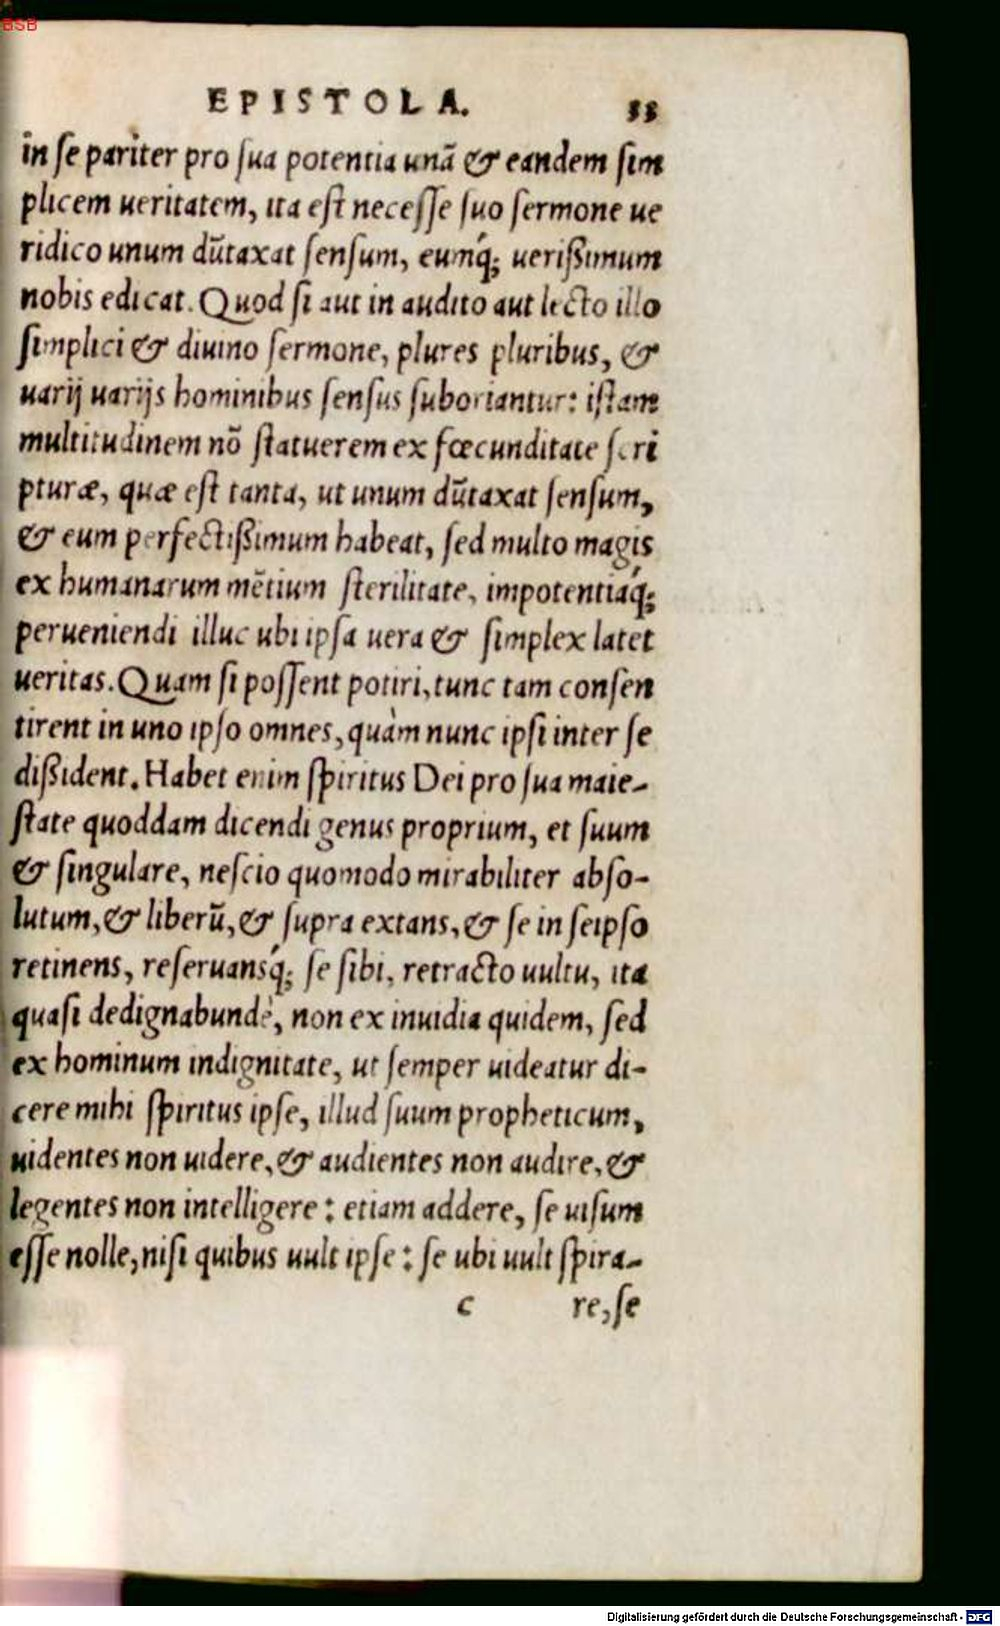 BSB
EPISTOLA. 33
in se pariter pro sua potentia unā & eandem sim
plicem ueritatem, ita est necesse suo sermone ue
ridico unum dūtaxat sensum, eumq́; uerißimum
nobis edicat. Quod si aut in audito aut lecto illo
simplici & diuino sermone, plures pluribus, &
uarij uarijs hominibus sensus suboriantur: istam
multitudinem nō statuerem ex fœcunditate scri
pturæ, quæ est tanta, ut unum dūtaxat sensum,
& eum perfectißimum habeat, sed multo magis
ex humanarum mētium sterilitate, impotentiaq́;
perueniendi illuc ubi ipsa uera & simplex latet
ueritas. Quam si possent potiri, tunc tam consen
tirent in uno ipso omnes, quàm nunc ipsi inter se
dißident. Habet enim spiritus Dei pro sua maie-
state quoddam dicendi genus proprium, et suum
& singulare, nescio quomodo mirabiliter abso-
lutum, & liberū, & supra extans, & se in seipso
retinens, reseruansq́; se sibi, retracto uultu, ita
quasi dedignabundè, non ex inuidia quidem, sed
ex hominum indignitate, ut semper uideatur di-
cere mihi spiritus ipse, illud suum propheticum,
uidentes non uidere, & audientes non audire, &
legentes non intelligere : etiam addere, se uisum
esse nolle, nisi quibus uult ipse : se ubi uult spira-
c re, se
Digitalisierung gefördert durch die Deutsche Forschungsgemeinschaft - DFG